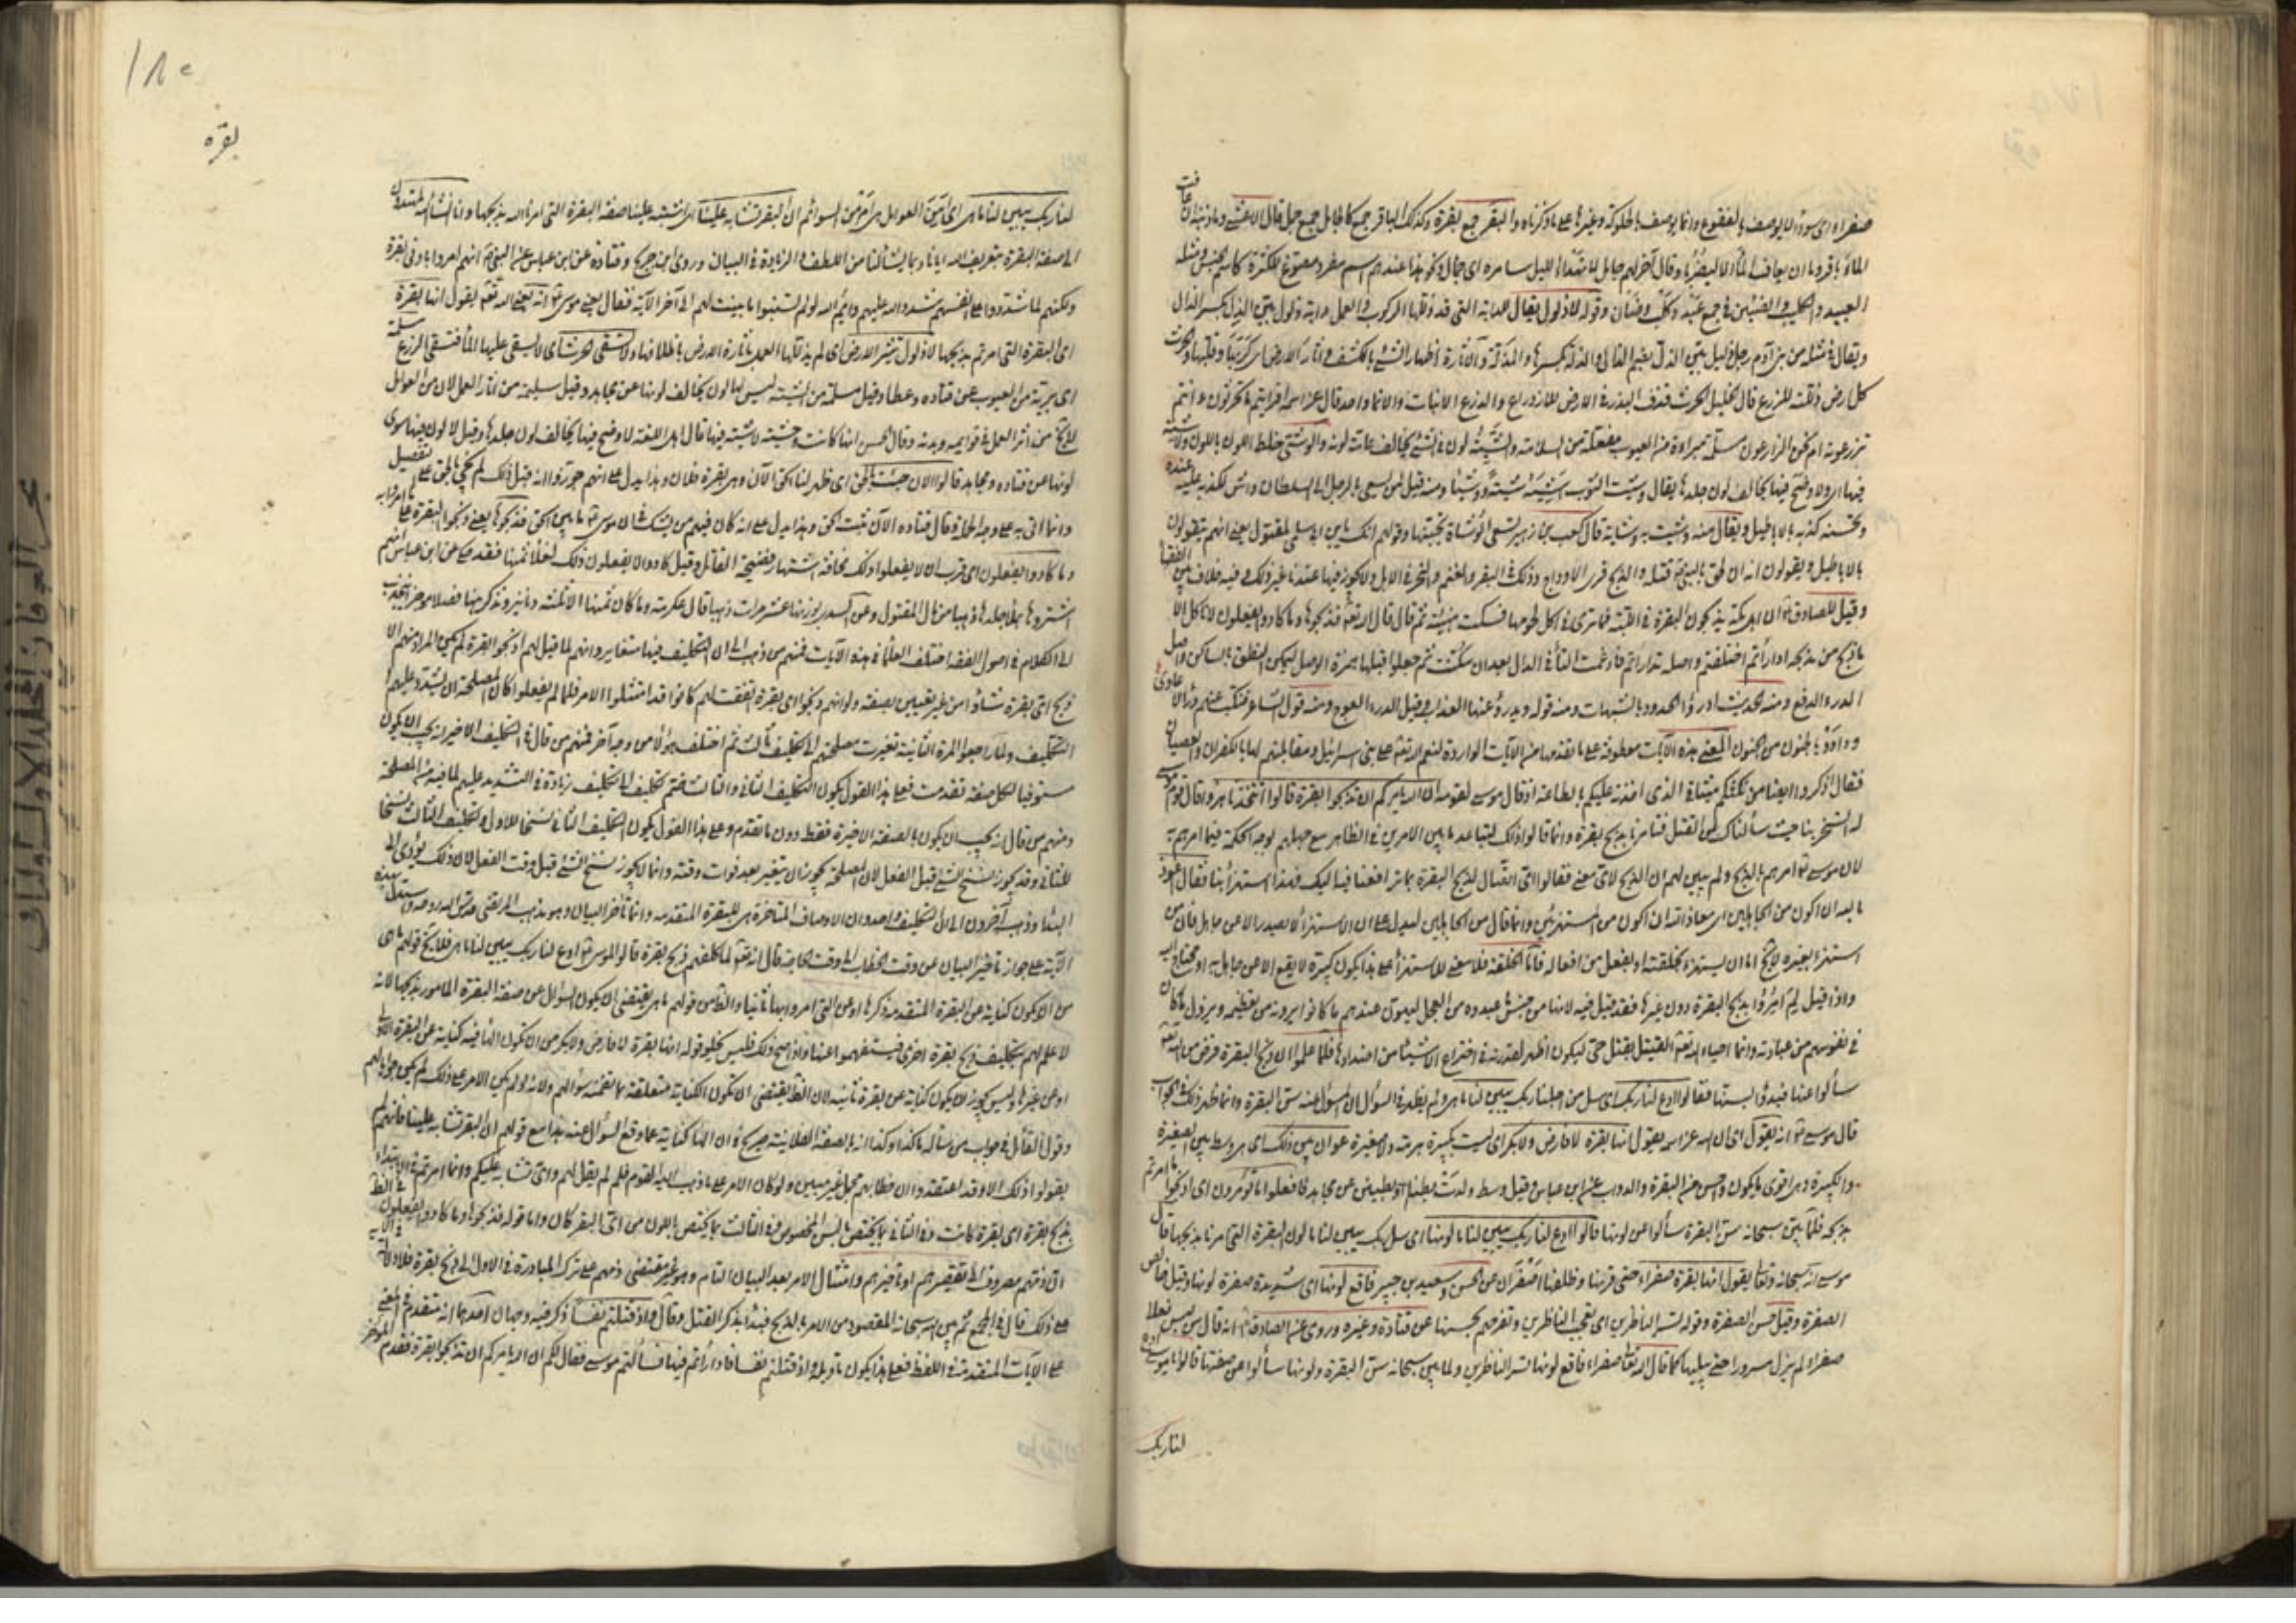 صفراء اى سوداء لا يوصف بالفقوع وانما يوصف بالحلوكة وغيرها على ما ذكرناه والبقر جمع بقرة وكذلك الباقر جمع كالجامل جمع جمل قال الاعشى وما ذنبه ان عافت
الماء باقر وما ان يعاف الماء الا ليضربا وقال آخر لهم جامل لا يهدأ الليل سامره اى جمال وكون هذا عندهم اسم مفرد مصوغ للكثرة كاسم الجنس ومثله
العبيد والكليب والضئين فى جمع عبد وكلب وضأن وقوله لا ذلول يقال للدابة التى قد ذللها الركوب او العمل دابة ذلول بين الذل بكسر الذال
ويقال فى مثله من بنى آدم رجل ذليل بين الذل بضم الذال والذلة بكسرها والمذلة والاثارة اظهار الشئ بالكشف واثار الارض اى كربها وقلبها والحرث
كل ارض ذللت للزرع قال الخليل الحرث قذف البذر فى الارض للازدراع والزرع الانبات والانماء واحد قال عز اسمه افرايتم ما تحرثون ءانتم
تزرعونه ام نحن الزارعون مسلمة مبرأة من العيوب مفعلة من السلامة والشية لون فى الشئ يخالف عامة لونه والوشى خلط اللون باللون ولا شية
فيها اى ولا وضح فيها يخالف لون جلدها يقال وشيت الثوب اشيه شية ووشيا ومنه قيل لمن يسعى بالرجل الى السلطان واش لكذبه عليه عنده
وتحسينه كذبه بالاباطيل ويقال منه وشيت به وشاية قال كعب بن زهير تسعى الوشاة بجنبيها وقولهم انك يا بن ابى سلمى لمقتول يعنى انهم يتقولون
بالاباطيل ويقولون انه ان لحق بالنبى ص قتله والذبح فرى الاوداج وذلك فى البقر والغنم والنحر فى الابل ولا يجوز فيها عندنا غير ذلك وفيه خلاف بين الفقهاء
وقيل للصادق ع ان اهل مكة يذبحون البقرة فى اللبة فما ترى فى اكل لحومها فسكت هنيئة ثم قال قال الله تعالى فذبحوها وما كادوا يفعلون لا تاكل الا
ما ذبح من مذبحه ادارأتم اختلفتم واصله تدارأتم فادغمت التاء فى الدال بعد ان سكنت ثم جعلوا قبلها همزة الوصل ليمكن النطق بالساكن واصل
الدرء الدفع ومنه الحديث ادرؤا الحدود بالشبهات ومنه قوله ويدرؤ عنها العذاب وقيل الدرء العوج ومنه قول الشاعر فنكبت عنهم درأ الاعادى
وداووا بالجنون من الجنون المعنى هذه الآيات معطوفة على ما تقدمها من الآيات الواردة لنعم الله تعالى على بنى اسرائيل ومقابلتهم لها بالكفران والعصيان
فقال اذكروا ايضا من نكثكم ميثاقى الذى اخذته عليكم بالطاعة اذ قال موسى لقومه ان الله يامركم ان تذبحوا بقرة قالوا اتتخذنا هزوا قال قوم موسى
له اتسخر بنا حيث سألناك عن القتيل فتامرنا بذبح بقرة وانما قالوا ذلك لتباعد ما بين الامرين فى الظاهر مع جهلهم بوجه الحكمة فيما امرهم به
لان موسى ع امرهم بالذبح ولم يبين لهم ان الذبح لاى معنى فقالوا اى اتصال لذبح البقرة بما ترافعنا فيه اليك فهذا استهزاء بنا فقال اعوذ
بالله ان اكون من الجاهلين اى معاذ الله ان اكون من المستهزئين وانما قال من الجاهلين ليدل على ان الاستهزاء لا يصدر الا عن جاهل فان من
استهزأ بغيره لا يخ اما ان يستهزء بخلقته او بفعل من افعاله فاما الخلقة فلا معنى للاستهزاء
واذا قيل لم امروا بذبح البقرة دون غيرها فقد قيل فيه لانها من جنس ما عبدوه من العجل ليهون عندهم ما كانوا يرونه من تعظيمه ويزول ما كان
فى نفوسهم من عبادته وانما احياء الله تعالى القتيل بقتل حى ليكون اظهر لقدرته فى اختراع الاشياء من اضدادها فلما علموا ان ذبح البقرة فرض من الله تعالى
سألوا عنها فبدؤا بسنها فقالوا ادع لنا ربك اى سل من اجلنا ربك يبين لنا ما هى ولم يظهر فى السؤال ان المسؤل عنه سن البقرة وانما ظهر ذلك فى الجواب
قال موسى ع انه يقول اى ان الله عز اسمه يقول انها بقرة لا فارض ولا بكر اى ليست بكبيرة هرمة ولا صغيرة عوان بين ذلك اى هى وسط بين الصغيرة
والكبيرة وهى اقوى ما يكون واحسن من البقرة والدواب عن ابن عباس وقيل وسط ولدت بطنا او بطنين عن مجاهد فافعلوا ما تؤمرون اى اذبحوا ما امرتم
بذبحه فلما بين سبحانه سن البقرة سألوا عن لونها قالوا ادع لنا ربك يبين لنا ما لونها اى سل ربك يبين لنا ما لون البقرة التى امرنا بذبحها قال
موسى انه سبحانه وتعالى يقول انها بقرة صفراء حتى قرنها وظلفها اصفران عن الحسن وسعيد بن جبير فاقع لونها اى شديدة صفرة لونها وقيل خالص
الصفرة وقيل حسن الصفرة وقوله تسر الناظرين اى تعجب الناظرين وتفرحهم بحسنها عن قتادة وغيره وروى عن الصادق ع انه قال من لبس نعلا
صفراء لم يزل مسرورا حتى يبليها كما قال الله تعالى صفراء فاقع لونها تسر الناظرين ولما بين سبحانه سن البقرة ولونها سألوا عن صفتها قالوا يا موسى ادع
لنا ربك
١٨٠
بقره
لنا ربك يبين لنا ما هى اى امن العوامل هى ام من السوائم ان البقر تشابه علينا اى اشتبه علينا صفة البقرة التى امرنا الله بذبحها وانا ان شاء الله لمهتدون
الى صفة البقرة بتعريف الله ايانا وبما يشاء لنا من اللطف والزيادة فى البيان وروى ابن جريج وقتادة عن ابن عباس عن النبى ص انهم امروا بادنى بقرة
ولكنهم لما شددوا على انفسهم شدد الله عليهم وايم الله لو لم يستثنوا ما بينت لهم الى آخر الآية فقال يعنى موسى ع انه يعنى الله تعالى يقول انها بقرة
اى البقرة التى امرتم بذبحها لا ذلول تثير الارض اى لم يذللها العمل باثارة الارض باظلافها ولا تسقى الحرث اى لا يستقى عليها الماء فتسقى الزرع مسلمة
اى بريئة من العيوب عن قتاده وعطا وقيل مسلمة من الشية ليس لها لون يخالف لونها عن مجاهد وقيل سليمة من اثار العمل لان من العوامل
لا يخ من اثر العمل فى قوايمه وبدنه وقال الحسن انها كانت وحشية لا شية فيها قال اهل اللغة لا وضح فيها يخالف لون جلدها وقيل لا لون فيها سوى
لونها عن قتاده ومجاهد قالوا الآن جئت بالحق اى ظهر لنا الحق الآن وهى بقرة فلان وهذا يدل على انهم جوزوا انه قبل ذلك لم يجئ بالحق على تفصيل
وانما اتى به على وجه الجملة وقال قتاده الآن بينت الحق وهذا يدل على انه كان فيهم من يشك فى ان موسى ع ما بين الحق فذبحوها يعنى ذبحوا البقرة على ما امروا به
وما كادوا يفعلون اى قرب ان لا يفعلوا ذلك مخافة اشتهار فضيحة القاتل وقيل كادوا لا يفعلون ذلك لغلاء ثمنها فقد حكى عن ابن عباس انهم
اشتروها بملأ جلدها ذهبا من مال المقتول وعن السدى بوزنها عشر مرات ذهبا قال عكرمة وما كان ثمنها الا ثلثة دنانير ونذكر هنا فصلا موجزا
الى الكلام فى اصول الفقه اختلف العلماء فى هذه الآيات فمنهم من ذهب الى ان التكليف فيها متغاير وانهم لما قيل لهم اذبحوا بقرة لم يكن المراد منهم الا
ذبح اى بقرة شاؤا من غير تعيين بصفة ولو انهم ذبحوا اى بقرة اتفقت لهم كانوا قد امتثلوا الامر فلما لم يفعلوا كان المصلحة ان يشدد عليهم
التكليف ولما راجعوا المرة الثانية تغيرت مصلحتهم الى تكليف ثالث ثم اختلف هؤلاء من وجه آخر فمنهم من قال فى التكليف الاخير انه يجب ان يكون
مستوفيا لكل صفة تقدمت فعلى هذا القول يكون التكليف الثانى والثالث ضم تكليف الى تكليف زيادة فى التشديد عليهم لما فيه من المصلحة
ومنهم من قال انه يجب ان يكون بالصفة الاخيرة فقط دون ما تقدم وعلى هذا القول يكون التكليف الثانى نسخا للاول والتكليف الثالث نسخا
للثانى وقد يجوز نسخ الشئ قبل الفعل لان المصلحة يجوز ان يتغير بعد فوات وقته وانما لا يجوز نسخ الشئ قبل وقت الفعل لان ذلك يؤدى الى
البداء وذهب آخرون الى ان التكليف واحد وان الاوصاف المتاخرة هى للبقرة المتقدمة وانما تأخر البيان وهو مذهب المرتضى قدس الله روحه واستدل بهذه
الآية على جواز تاخير البيان عن وقت الخطاب الى وقت الحاجة قال انه تعالى لما كلفهم ذبح بقرة قالوا لموسى ع ادع لنا ربك يبين لنا ما هى فلا يخ قولهم ما هى
من ان يكون كناية عن البقرة المتقدمة ذكرها او عن التى امروا بها ثانيا والظ من قولهم ما هى يقتضى ان يكون السؤال عن صفة البقرة المامور بذبحها لانه
لا علم لهم بتكليف ذبح بقرة اخرى فيستفهموا عنها واذا صح ذلك فليس يخلو قوله انها بقرة لا فارض ولا بكر من ان يكون الهاء فيه كناية عن البقرة الاولى
او عن غيرها وليس يجوز ان يكون كناية عن بقرة ثانية لان الظ يقتضى ان تكون الكناية متعلقة بما تضمنه سؤالهم ولانه لو لم يكن الامر على ذلك لم يكن جوابا لهم
وقول القائل فى جواب من سأله ما كذا وكذا انه بالصفة الفلانية صريح فى ان الهاء كناية عما وقع السؤال عنه هذا مع قولهم ان البقر تشابه علينا فانهم لم
يقولوا ذلك الا وقد اعتقدوا ان خطابهم مجمل غير مبين ولو كان الامر على ما ذهب اليه القوم فلم لم يقل لهم واى تشابه عليكم وانما امرتم فى الابتداء
بذبح بقرة اى بقرة كانت وفى الثانى بما يختص بالسن المخصوص وفى الثالث بما يختص باللون من اى البقر كان واما قوله فذبحوها وما كادوا يفعلون فالظ
ان ذمهم مصروف الى تقصيرهم او تاخيرهم وامتثال الامر بعد البيان التام وهو غير مقتضى ذمهم على ترك المبادرة فى الاول الى ذبح بقرة فلا دلالة فى الآية
على ذلك قال فى المجمع ثم بين الله سبحانه المقصود من الامر بالذبح فبدأ بذكر القتل وقال واذ قتلتم نفسا ذكر فيه وجهان احدهما انه متقدم فى المعنى
على الآيات المتقدمة فى اللفظ فعلى هذا يكون تاويله واذ قتلتم نفسا فادارأتم فيها فسألتم موسى فقال لكم ان الله يامركم ان تذبحوا بقرة فقدم المؤخر